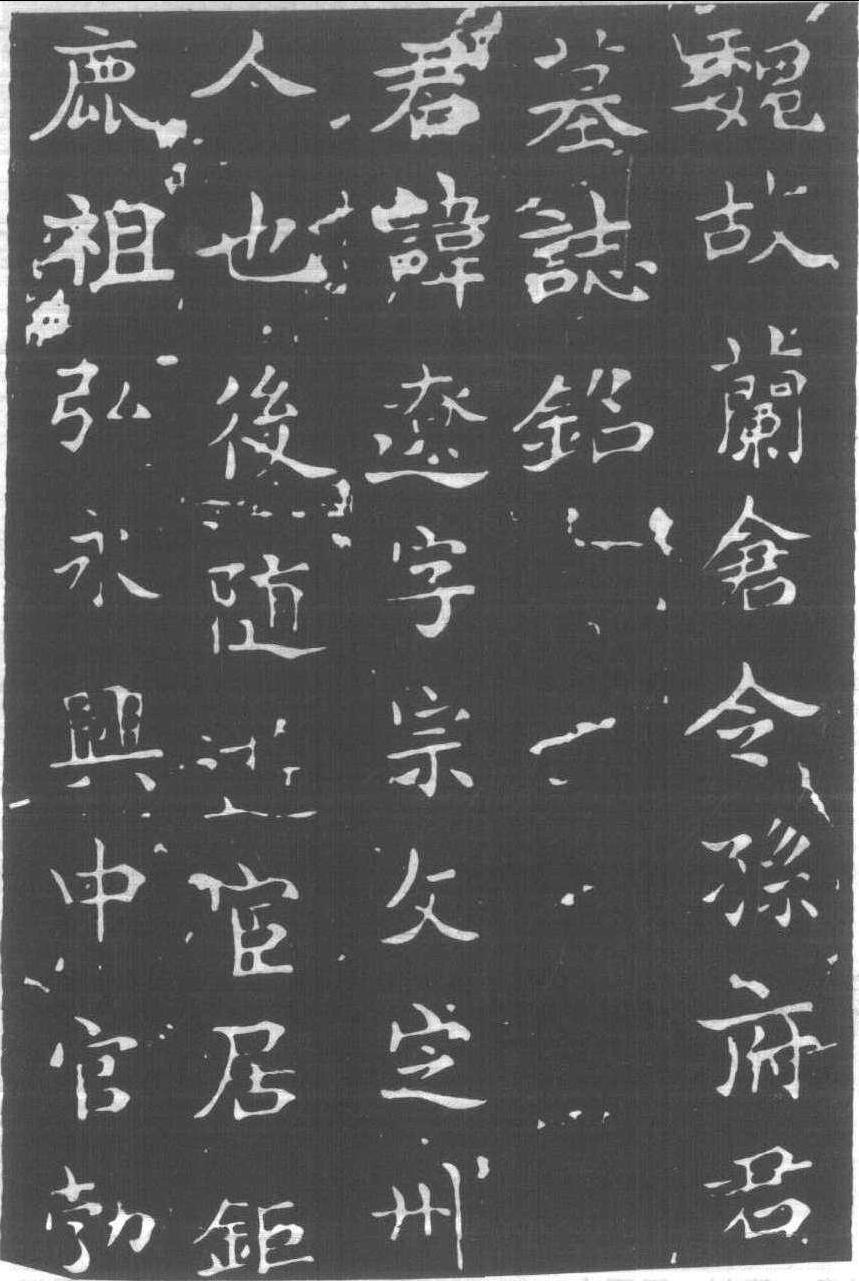 魏故蘭倉令孫府君
墓誌銘
君諱遼字宗文定州
人也後隨逰宦居鉅
鹿祖弘永興中官勃